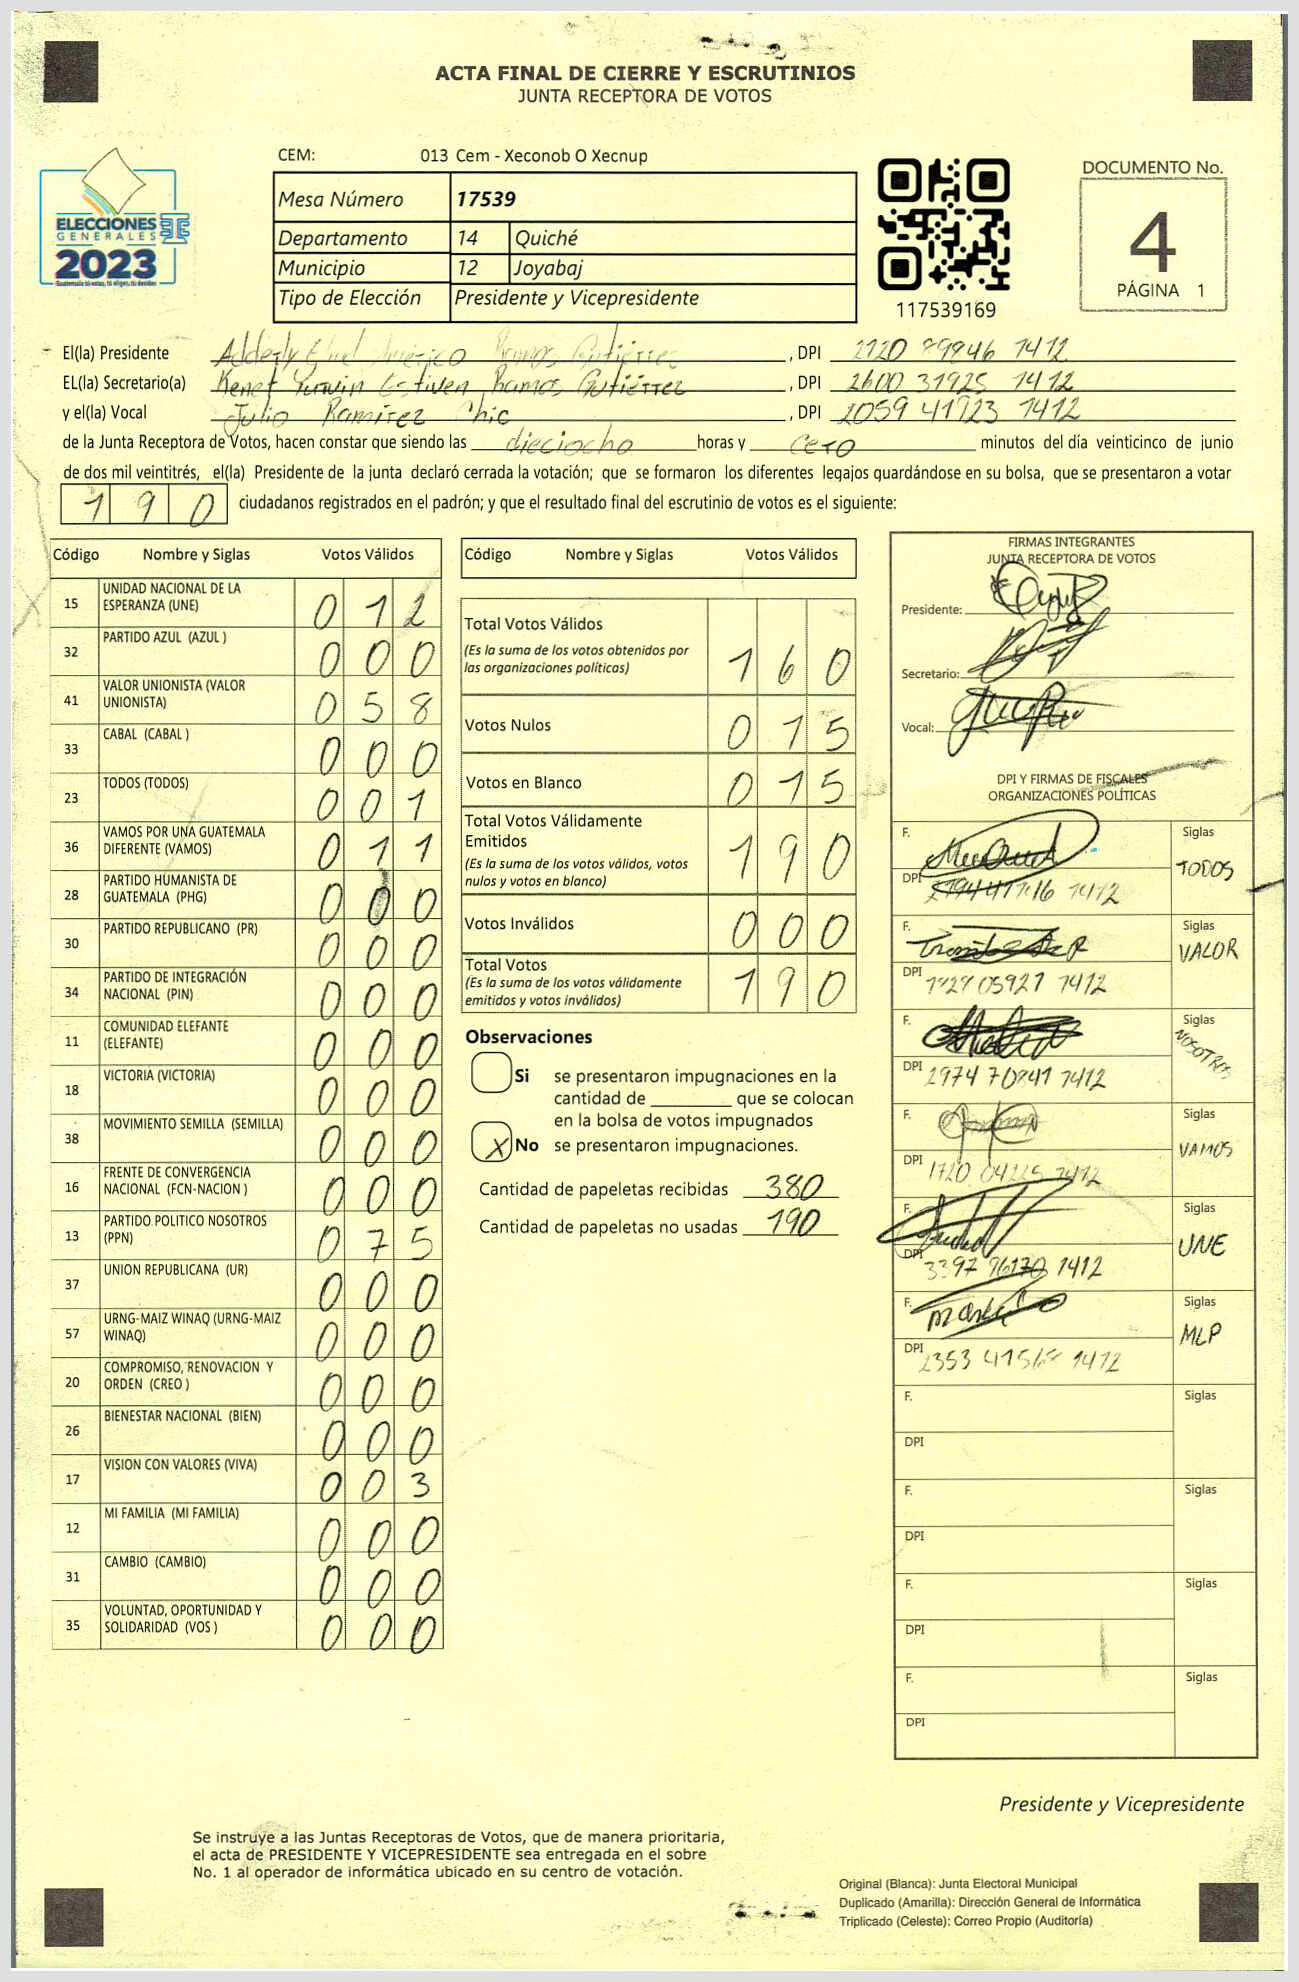 ACTA FINAL DE CIERRE Y ESCRUTINIOS
JUNTA RECEPTORA DE VOTOS
ELECCIONES
GENERALES
2023
Guatemala tú votas, tú eliges, tú decides
CEM: 013 Cem - Xeconob O Xecnup
Mesa Número 17539
Departamento 14 Quiché
Municipio 12 Joyabaj
Tipo de Elección Presidente y Vicepresidente
117539169
DOCUMENTO No.
4
PÁGINA 1
El(la) Presidente Adderly Américo Ramos Gutiérrez , DPI 2120 89846 1412
EL(la) Secretario(a) Kenet Yurwin Estiven Ramos Gutiérrez , DPI 2600 31925 1412
y el(la) Vocal Julio Ramírez Chic , DPI 2059 41923 1412
de la Junta Receptora de Votos, hacen constar que siendo las dieciocho horas y cero minutos del día veinticinco de junio
de dos mil veintitrés, el(la) Presidente de la junta declaró cerrada la votación; que se formaron los diferentes legajos guardándose en su bolsa, que se presentaron a votar
190 ciudadanos registrados en el padrón; y que el resultado final del escrutinio de votos es el siguiente:
Código Nombre y Siglas Votos Válidos
15 UNIDAD NACIONAL DE LA ESPERANZA (UNE) 0 1 2
32 PARTIDO AZUL (AZUL ) 0 0 0
41 VALOR UNIONISTA (VALOR UNIONISTA) 0 5 8
33 CABAL (CABAL ) 0 0 0
23 TODOS (TODOS) 0 0 1
36 VAMOS POR UNA GUATEMALA DIFERENTE (VAMOS) 0 1 1
28 PARTIDO HUMANISTA DE GUATEMALA (PHG) 0 0 0
30 PARTIDO REPUBLICANO (PR) 0 0 0
34 PARTIDO DE INTEGRACIÓN NACIONAL (PIN) 0 0 0
11 COMUNIDAD ELEFANTE (ELEFANTE) 0 0 0
18 VICTORIA (VICTORIA) 0 0 0
38 MOVIMIENTO SEMILLA (SEMILLA) 0 0 0
16 FRENTE DE CONVERGENCIA NACIONAL (FCN-NACION ) 0 0 0
13 PARTIDO POLITICO NOSOTROS (PPN) 0 7 5
37 UNION REPUBLICANA (UR) 0 0 0
57 URNG-MAIZ WINAQ (URNG-MAIZ WINAQ) 0 0 0
20 COMPROMISO, RENOVACION Y ORDEN (CREO ) 0 0 0
26 BIENESTAR NACIONAL (BIEN) 0 0 0
17 VISION CON VALORES (VIVA) 0 0 3
12 MI FAMILIA (MI FAMILIA) 0 0 0
31 CAMBIO (CAMBIO) 0 0 0
35 VOLUNTAD, OPORTUNIDAD Y SOLIDARIDAD (VOS ) 0 0 0
Código Nombre y Siglas Votos Válidos
Total Votos Válidos 1 6 0
(Es la suma de los votos obtenidos por
las organizaciones políticas)
Votos Nulos 0 1 5
Votos en Blanco 0 1 5
Total Votos Válidamente
Emitidos 1 9 0
(Es la suma de los votos válidos, votos
nulos y votos en blanco)
Votos Inválidos 0 0 0
Total Votos 1 9 0
(Es la suma de los votos válidamente
emitidos y votos inválidos)
Observaciones
Si se presentaron impugnaciones en la
cantidad de ________ que se colocan
en la bolsa de votos impugnados
X No se presentaron impugnaciones.
Cantidad de papeletas recibidas 380
Cantidad de papeletas no usadas 190
FIRMAS INTEGRANTES
JUNTA RECEPTORA DE VOTOS
Presidente:
Secretario:
Vocal:
DPI Y FIRMAS DE FISCALES
ORGANIZACIONES POLÍTICAS
F. Siglas
TODOS
DPI 1412
F. Siglas
VALOR
DPI 05921 1412
F. Siglas
NOSOTROS
DPI 2974 70841 1412
F. Siglas
VAMOS
DPI 1720 1412
F. Siglas
UNE
DPI 3397 96170 1412
F. Siglas
MLP
DPI 2353 1412
F. Siglas
DPI
F. Siglas
DPI
F. Siglas
DPI
F. Siglas
DPI
Presidente y Vicepresidente
Se instruye a las Juntas Receptoras de Votos, que de manera prioritaria,
el acta de PRESIDENTE Y VICEPRESIDENTE sea entregada en el sobre
No. 1 al operador de informática ubicado en su centro de votación.
Original (Blanca): Junta Electoral Municipal
Duplicado (Amarilla): Dirección General de Informática
Triplicado (Celeste): Correo Propio (Auditoría)